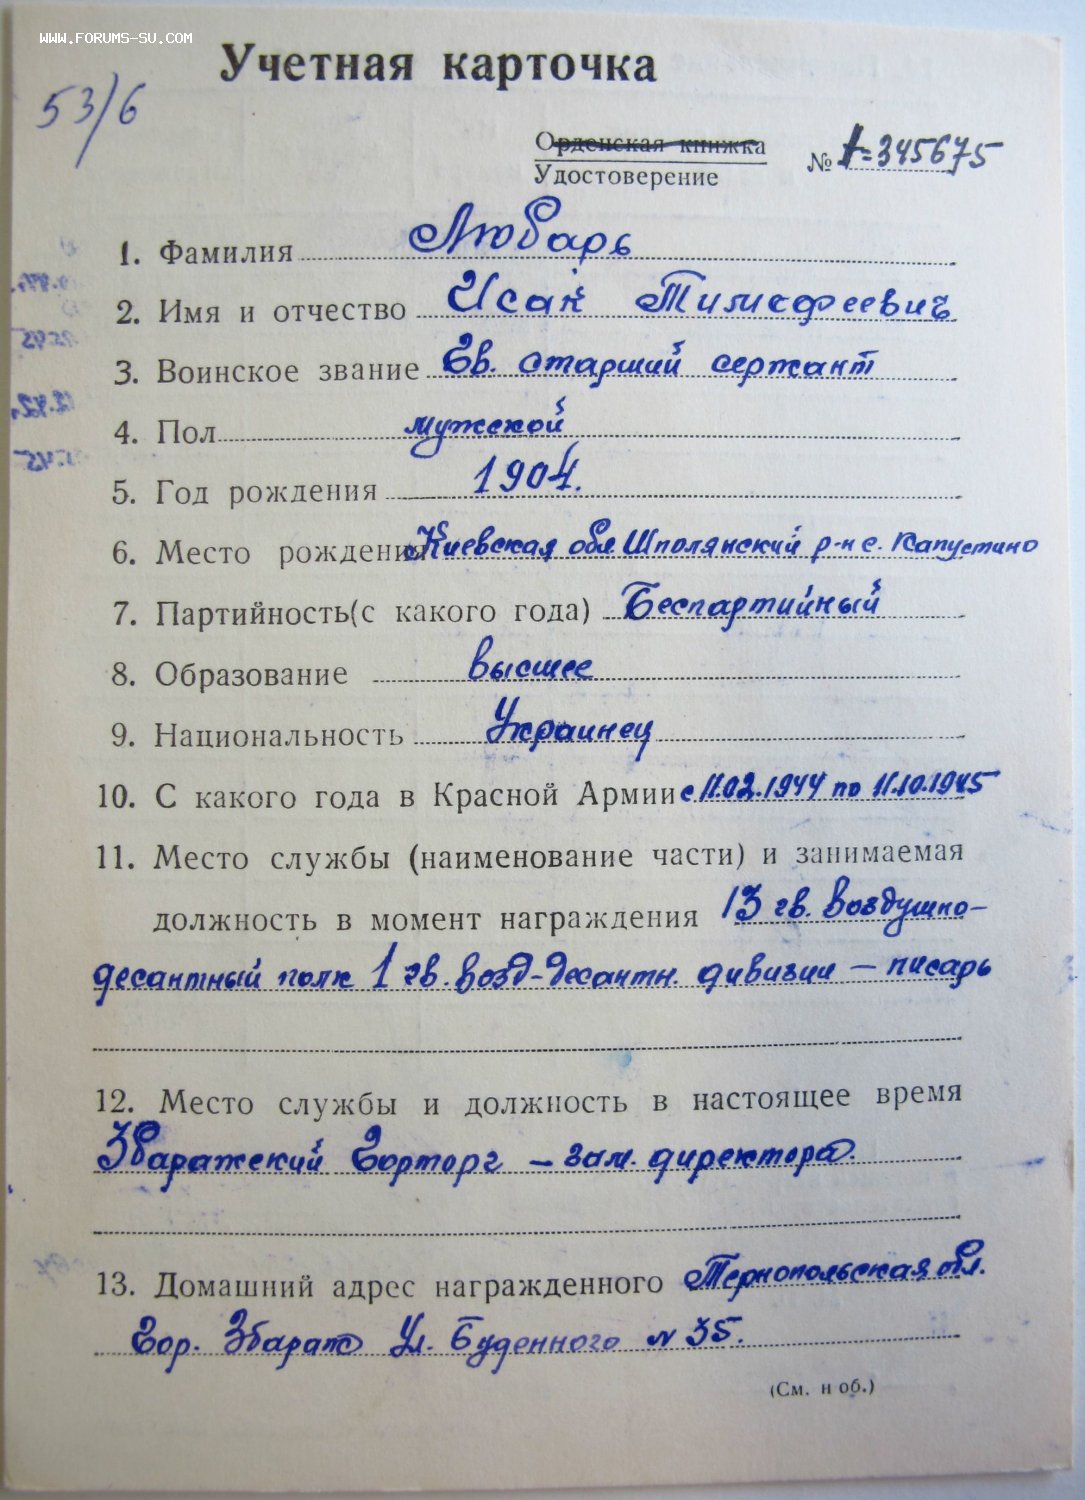 WWW.FORUMS-SU.COM
Учетная карточка
53/6
Орденская книжка
Удостоверение
№ А=345675
1. Фамилия Любарь
2. Имя и отчество Исак Тимофеевич
3. Воинское звание Гв. старший сержант
4. Пол мужской
5. Год рождения 1904.
6. Место рождения Киевская обл. Шполянский р-н с. Капустино
7. Партийность(с какого года) Беспартийный
8. Образование высшее
9. Национальность Украинец
10. С какого года в Красной Армии с 11.02.1944 по 11.10.1945
11. Место службы (наименование части) и занимаемая
должность в момент награждения 13 гв. воздушно-
десантный полк 1 гв. возд-десантн. дивизии – писарь
12. Место службы и должность в настоящее время
Збаражский Горторг – зам. директора.
13. Домашний адрес награжденного Тернопольская обл.
Гор. Збараж Ул. Буденного № 35.
(См. н об.)